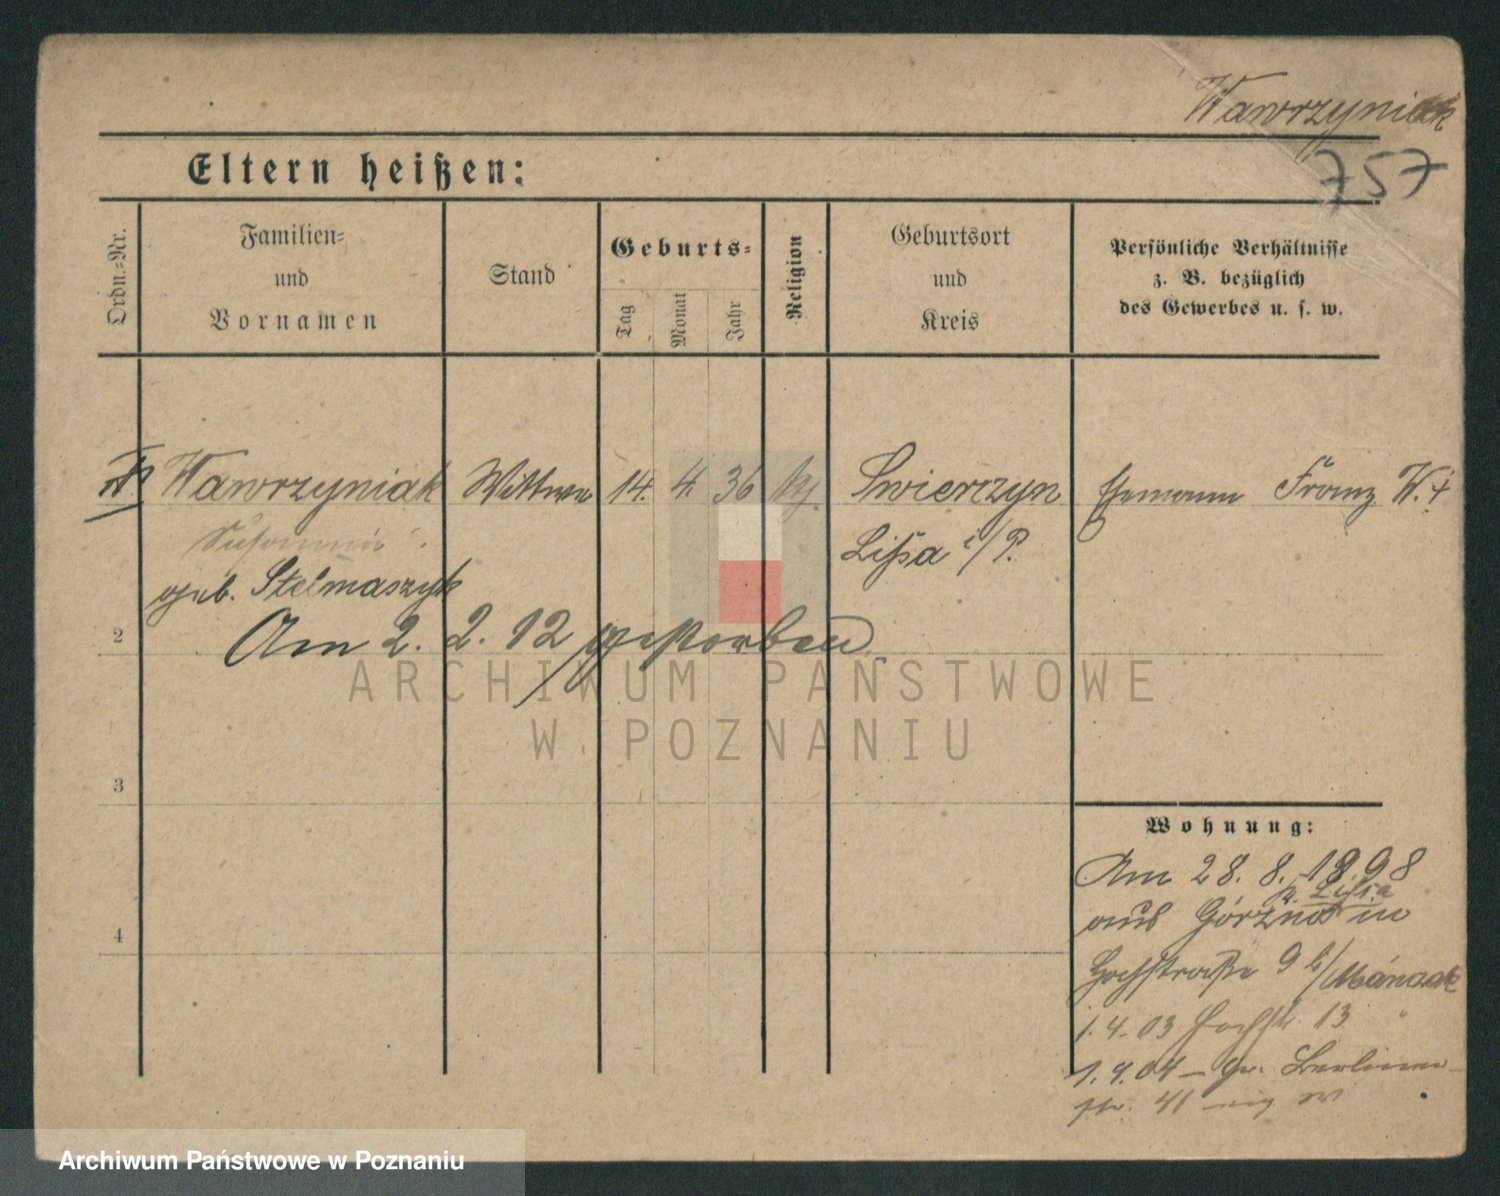 Wawrzyniak
757
Eltern heißen:
Ordn.-Nr.
Familien-
und
Vornamen
Stand
Geburts-
Tag
Monat
Jahr
Religion
Geburtsort
und
Kreis
Persönliche Verhältnisse
z. B. bezüglich
des Gewerbes u. s. w.
Wawrzyniak Wittwe 14. 4. 36 Swierczyn Ehemann Franz W. †
Lissa i/P.
geb. Stelmaszyk
2
Am 2. 2. 12 gestorben
3
4
Wohnung:
Am 28. 8. 1898
K. Lissa
aus Górzno in
Hochstraße 9 b/
1.4.03 Hochstr. 13
1.4.04 – Gr. Berliner-
str. 41
ARCHIWUM PAŃSTWOWE
W POZNANIU
Archiwum Państwowe w Poznaniu